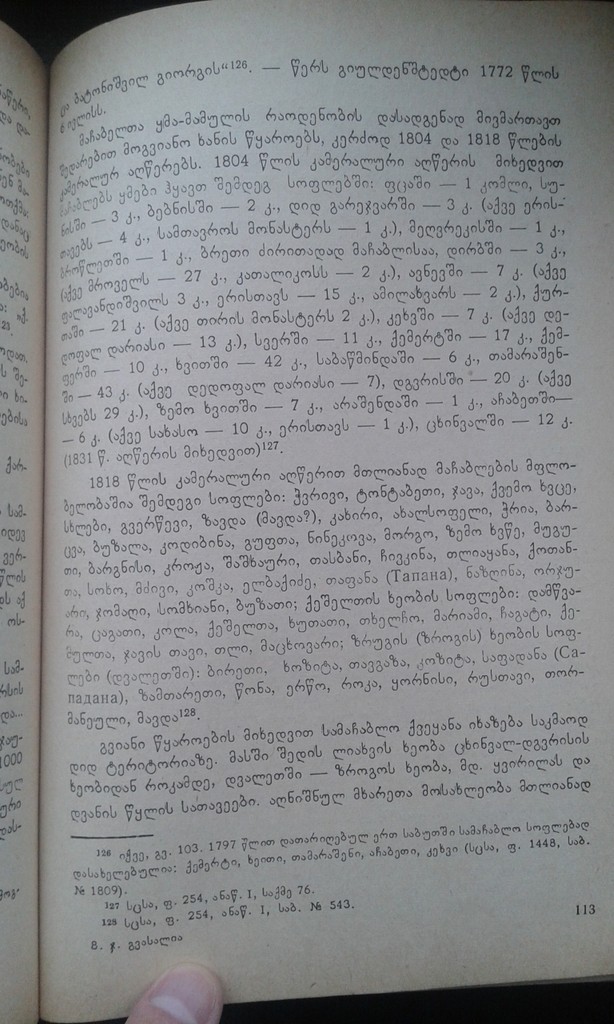 და ბატონიშვილ გიორგის“¹²⁶. — წერს გიულდენშტედტი 1772 წლის
ივლისს.
მაჩაბელთა ყმა-მამულის რაოდენობის დასადგენად მივმართავთ
შედარებით მოგვიანო ხანის წყაროებს, კერძოდ 1804 და 1818 წლების
კამერალურ აღწერებს. 1804 წლის კამერალური აღწერის მიხედვით
მაჩაბლებს ყმები ჰყავთ შემდეგ სოფლებში: ფცაში — 1 კომლი, სუ-
ნისში — 3 კ., ბებნისში — 2 კ., დიდ გარეჯვარში — 3 კ. (აქვე ერის-
თავებს — 4 კ., სამთავროს მონასტერს — 1 კ.), მეღვრეკისში — 1 კ.,
ბროწლეთში — 1 კ., ბრეთი ძირითადად მაჩაბლისაა, დირბში — 3 კ.,
(აქვე მროველს — 27 კ., კათალიკოსს — 2 კ.), ავნევში — 7 კ. (აქვე
ფალავანდიშვილს 3 კ., ერისთავს — 15 კ., ამილახვარს — 2 კ.), ქურ-
თაში — 21 კ. (აქვე თირის მონასტერს 2 კ.), კეხვში — 7 კ. (აქვე დე-
დოფალ დარიასი — 13 კ.), სვერში — 11 კ., ქემერტში — 17 კ., ქემ-
ფერში — 10 კ., ხვითში — 42 კ., საბაწმინდაში — 6 კ., თამარაშენ-
ში — 43 კ. (აქვე დედოფალ დარიასი — 7), დგვრისში — 20 კ. (აქვე
სხვებს 29 კ.), ზემო ხვითში — 7 კ., არაშენდაში — 1 კ., აჩაბეთში—
— 6 კ. (აქვე სახასო — 10 კ., ერისთავს — 1 კ.), ცხინვალში — 12 კ.
(1831 წ. აღწერის მიხედვით)¹²⁷.
1818 წლის კამერალური აღწერით მთლიანად მაჩაბლების მფლო-
ბელობაშია შემდეგი სოფლები: ჭვრივი, ტონტაბეთი, ჯავა, ქვემო ხვცე,
სხლები, გვერწევი, ზავდა (მავდა?), კახირი, ახალსოფელი, ჭრია, ბარ-
ცვა, ბუზალა, კოდიბინა, გუფთა, ნინეკოვა, მორგო, ზემო ხვწე, მუგუ-
თი, ბარგნისი, კროჟა, შაშხაური, თასბანი, ჩივკინა, თლიაყანა, ქოთან-
თა, სოხო, მძივი, კოშკა, ელბაქიძე, თაფანა (Тапана), ნაზღინა, ორჯუ-
არი, ჯომაღი, სომხიანი, ბუზათი; ქეშელთის ხეობის სოფლები: დამწვა-
რა, ცაგათი, კოლა, ქეშელთა, ხუთათი, თხელჩო, მარიამი, ჩაგატი, ქე-
მულთა, ჯავის თავი, თლი, მაცხოვარი; ზრუგის (ზროგის) ხეობის სოფ-
ლები (დვალეთში): ბირეთი, ხოზიტა, თავგაზა, კოზიტა, საფადანა (Са-
падана), ზამთარეთი, წონა, ერწო, როკა, ყორნისი, რუსთავი, თორ-
მანეული, მავდა¹²⁸.
გვიანი წყაროების მიხედვით სამაჩაბლო ქვეყანა იხაზება საკმაოდ
დიდ ტერიტორიაზე. მასში შედის ლიახვის ხეობა ცხინვალ-დგვრისის
ხეობიდან როკამდე, დვალეთში — ზროგოს ხეობა, მდ. ყვირილას და
დვანის წყლის სათავეები. აღნიშნულ მხარეთა მოსახლეობა მთლიანად
¹²⁶ იქვე, გვ. 103. 1797 წლით დათარიღებულ ერთ საბუთში სამაჩაბლო სოფლებად
დასახელებულია: ქემერტი, ხეითი, თამარაშენი, აჩაბეთი, კეხვი (სცსა, ფ. 1448, საბ.
№ 1809).
¹²⁷ სცსა, ფ. 254, ანაწ. I, საქმე 76.
¹²⁸ სცსა, ფ. 254, ანაწ. I, საბ. № 543.
8. ჯ. გვასალია
113